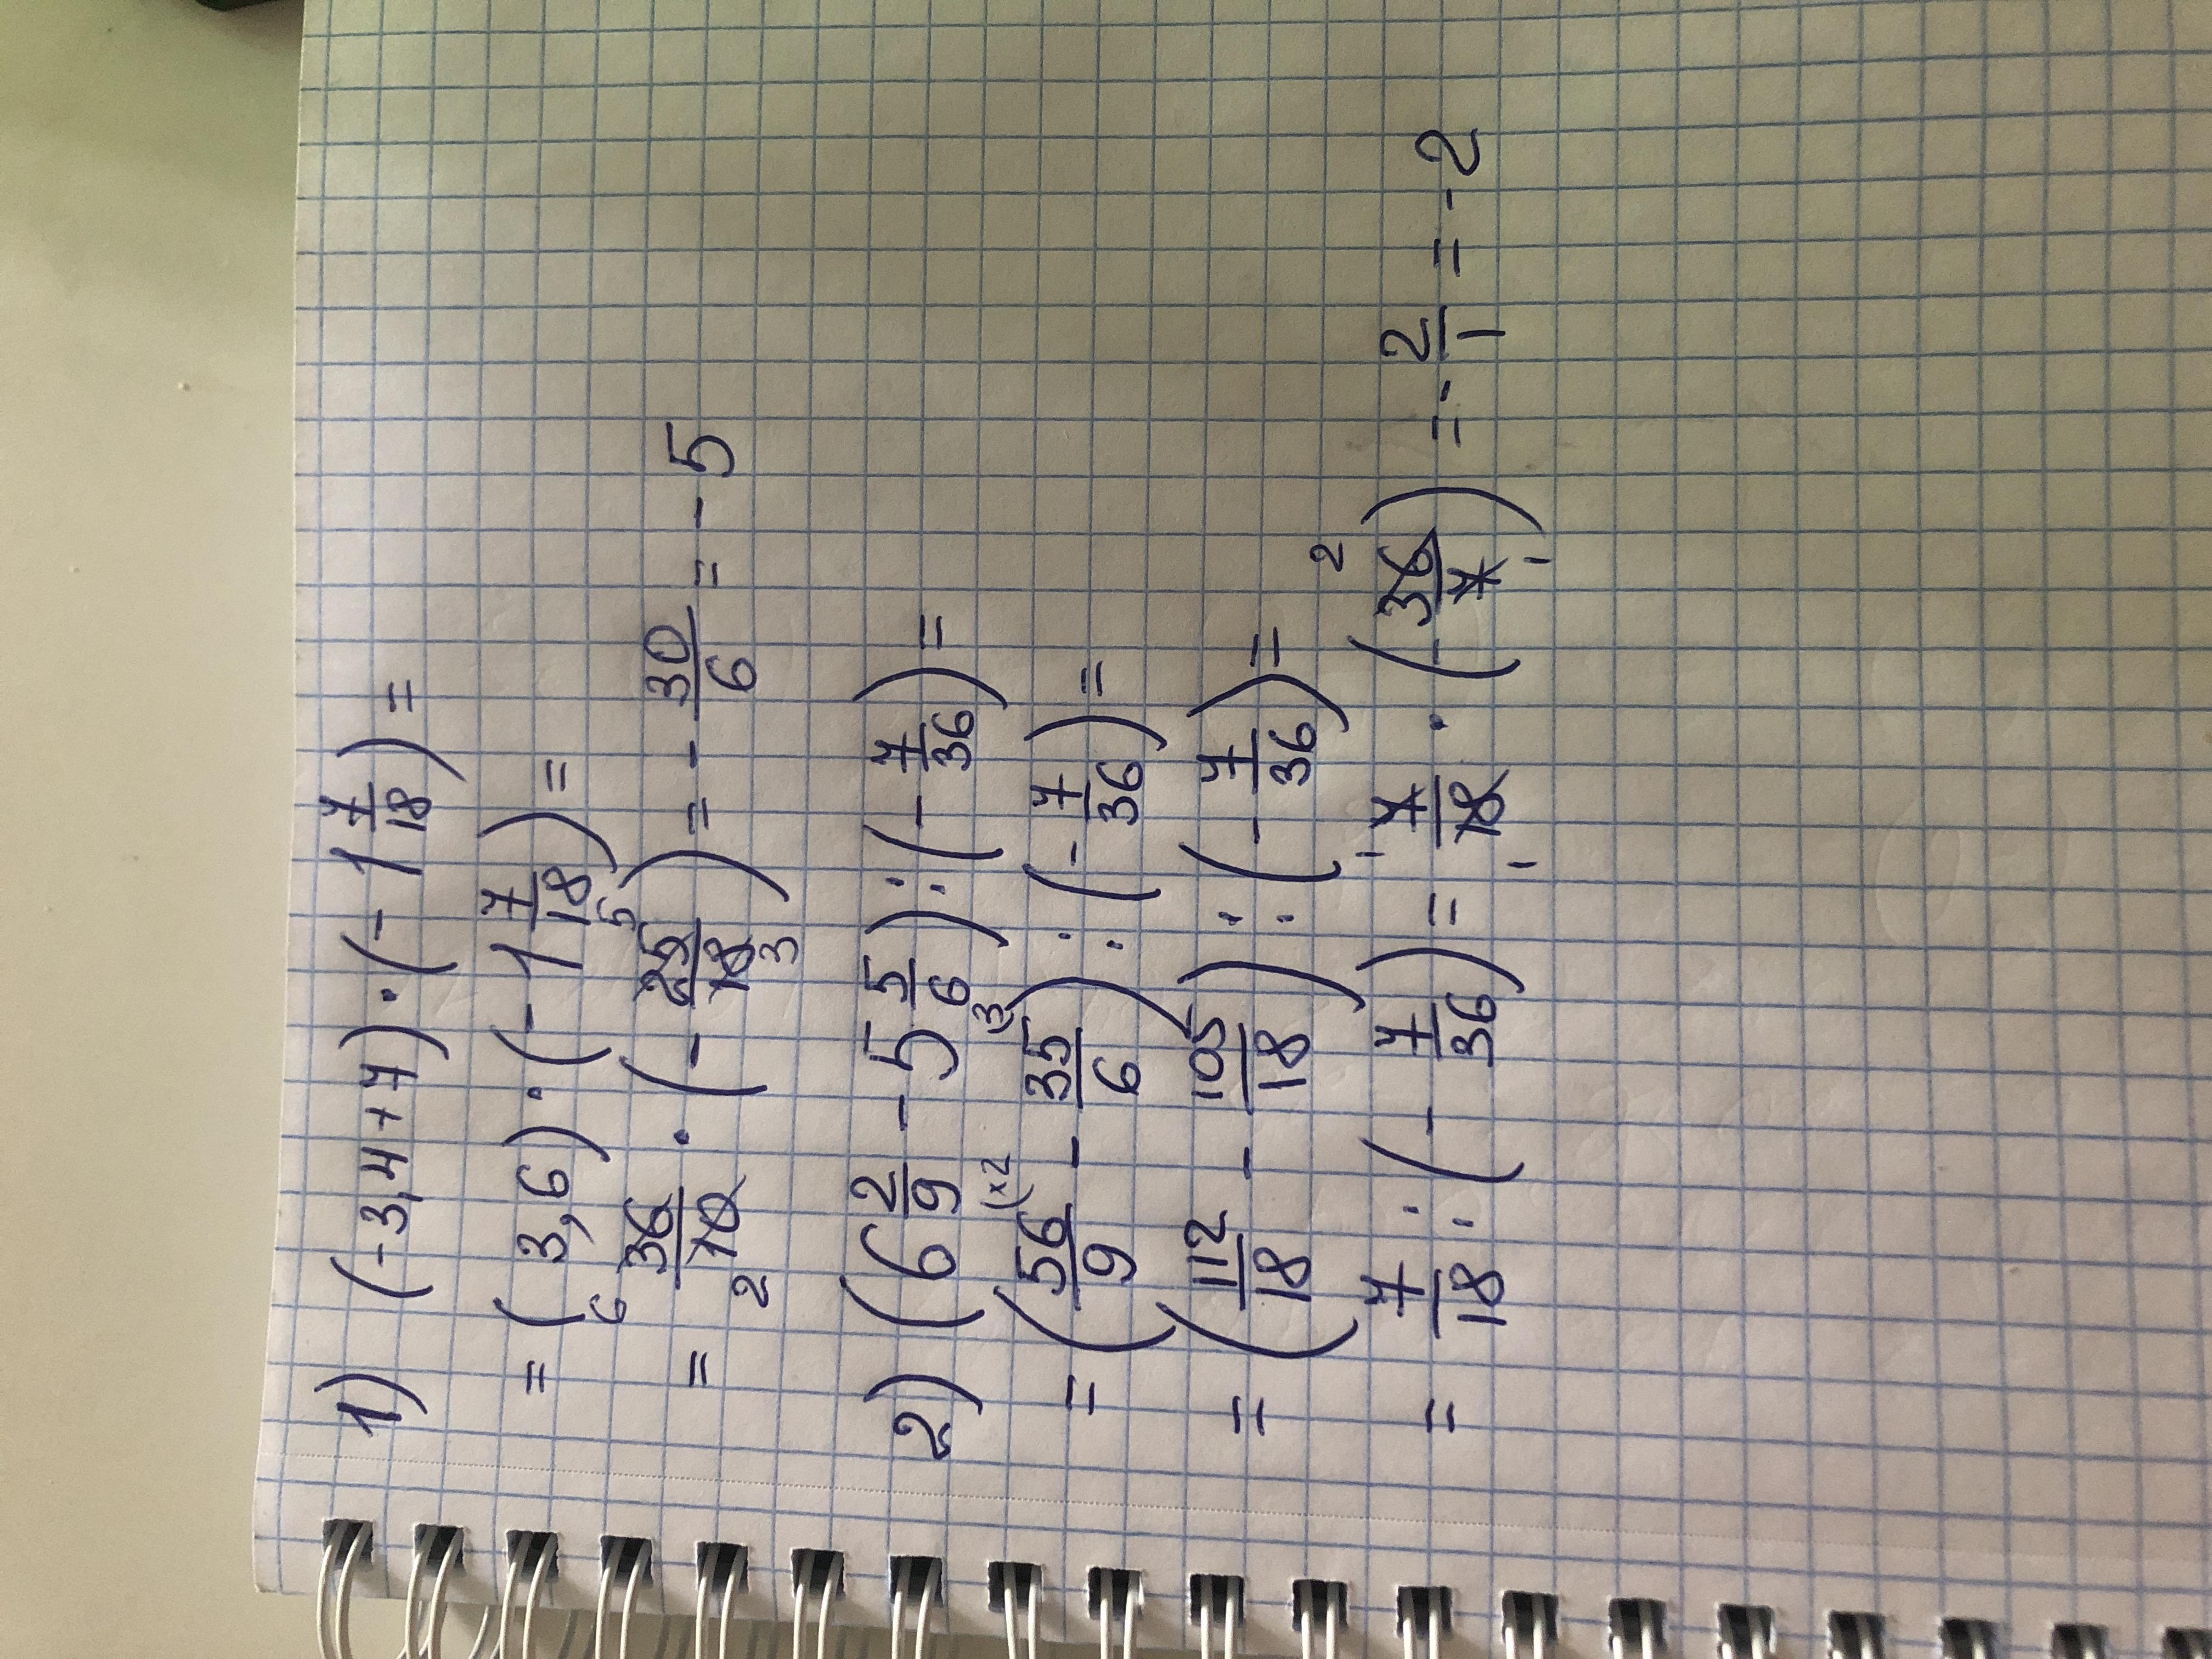 1) (-3,4+7)·(-1 7/18)=
=(3,6)·(-1 7/18)=
= 36/10 · (- 25/18) = - 30/6 = -5
2) (6 2/9 - 5 5/6) : (- 7/36) =
= (56/9 - 35/6) : (- 7/36) =
= (112/18 - 105/18) : (- 7/36) =
= 7/18 : (- 7/36) = 7/18 · (- 36/7) = - 2/1 = -2